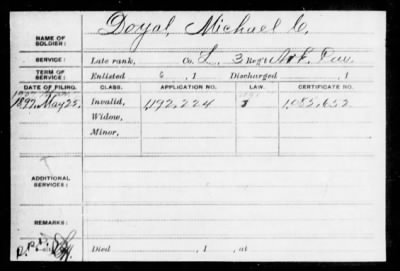 NAME OF SOLDIER: Doyal, Michael C.
SERVICE: Late rank, Co. L, 3 Reg't Ark Cav.
TERM OF SERVICE: Enlisted 6, 1 Discharged , 1
DATE OF FILING. CLASS. APPLICATION NO. LAW. CERTIFICATE NO.
1897, May 25. Invalid, 1,192,224 1,082,652
Widow,
Minor,
ADDITIONAL SERVICES:
REMARKS:
Died , 1 , at